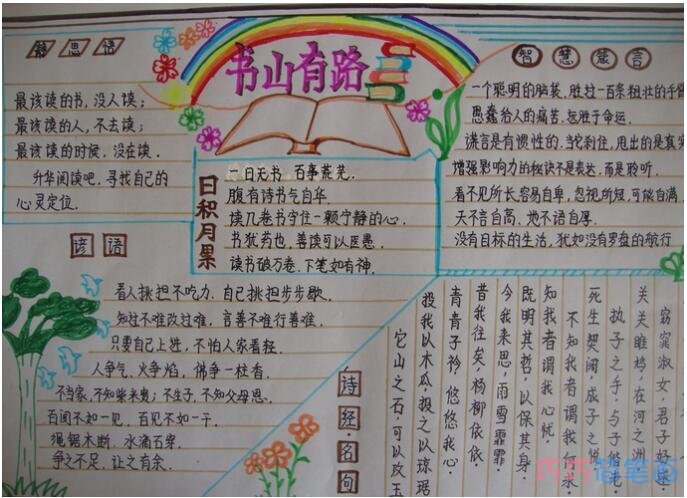 静思语
最该读的书，没人读；
最该读的人，不去读；
最该读的时候，没在读．
升华阅读吧，寻找自己的
心灵定位．
书山有路
日积月累
一日无书，百事荒芜．
腹有诗书气自华．
读几卷书守住一颗宁静的心．
书犹药也，善读可以医愚．
读书破万卷，下笔如有神．
智慧箴言
一个聪明的脑袋，胜过一百条粗壮的手臂
愚蠢给人的痛苦，远胜于命运．
谎言是有惯性的，当舵刹住，甩出的是真实
增强影响力的秘诀不是表达，而是聆听．
看不见所长，容易自卑，忽视所短，可能自满
天不言自高，地不语自厚．
没有目标的生活，犹如没有罗盘的航行
谚语
看人挑担不吃力，自己挑担步步歇．
知过不难改过难，言善不难行善难．
只要自己上进，不怕人家看轻．
人争气，火争焰，佛争一柱香．
不当家，不知柴米贵；不生子，不知父母恩．
百闻不如一见，百见不如一干．
绳锯木断，水滴石穿．
争之不足，让之有余．
诗经·名句
窈窕淑女，君子好逑．
关关雎鸠，在河之洲
执子之手，与子偕老
死生契阔，成子之悦
不知我者，谓我何求
知我者谓我心忧，
既明其哲，以保其身．
今我来思，雨雪霏霏．
昔我往矣，杨柳依依．
青青子衿，悠悠我心
投我以木瓜，报之以琼琚
它山之石，可以攻玉
巧巧简笔画